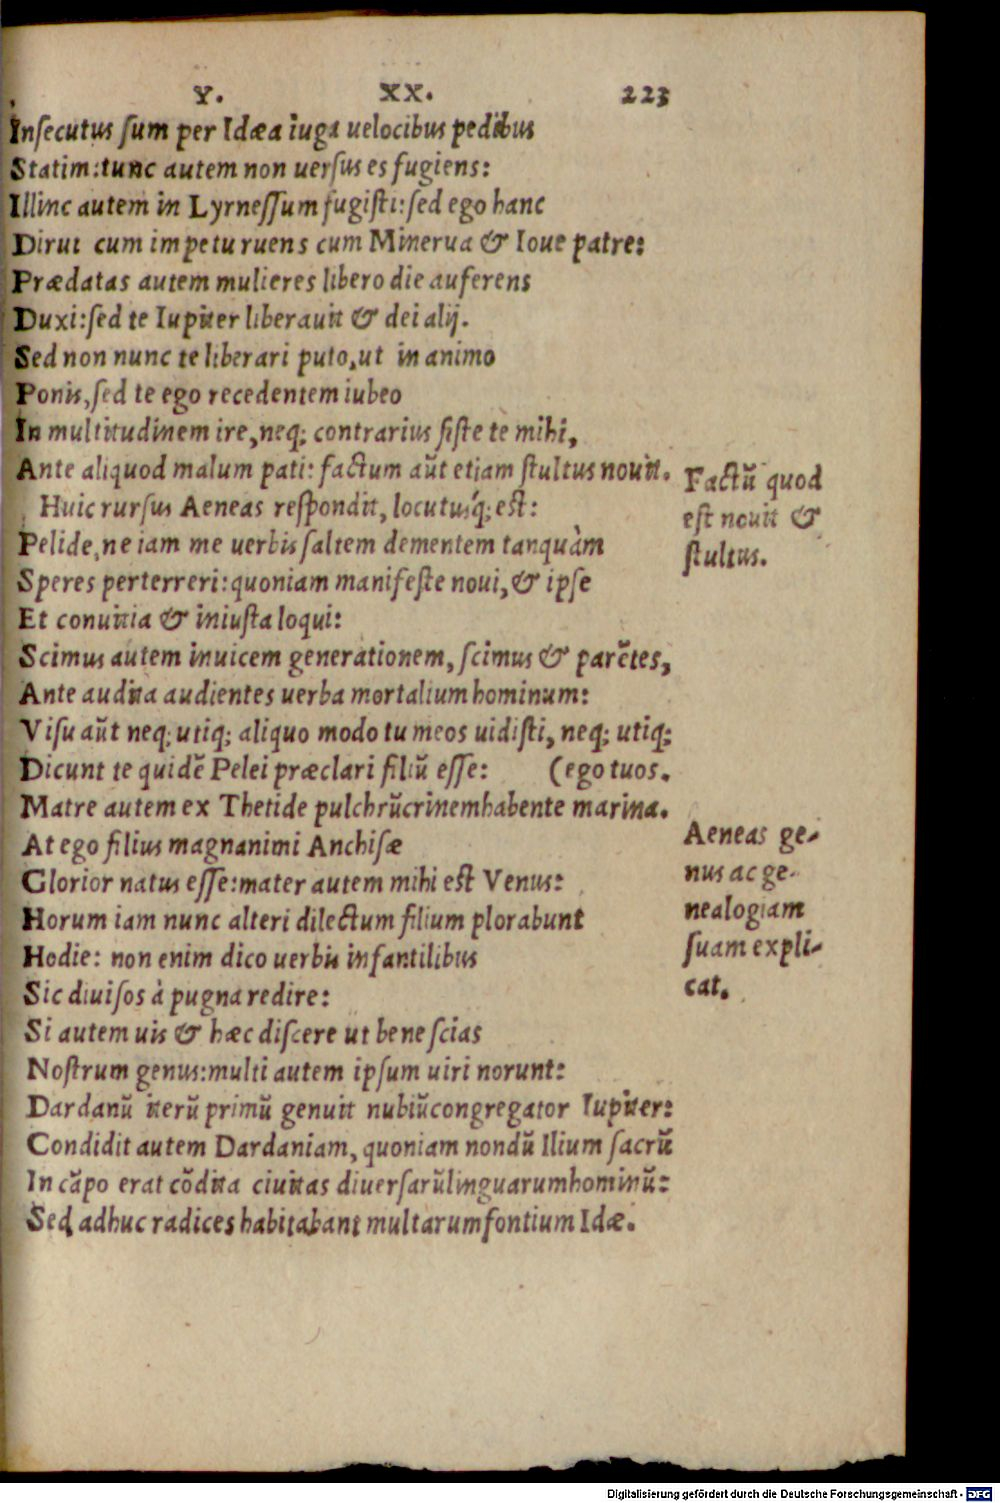 Y. XX. 223
Inſecutus ſum per Idæa iuga uelocibus pedibus
Statim: tunc autem non uerſus es fugiens:
Illinc autem in Lyrneſſum fugiſti: ſed ego hanc
Dirui cum impetu ruens cum Minerua & Ioue patre:
Prædatas autem mulieres libero die auferens
Duxi: ſed te Iupiter liberauit & dei alij.
Sed non nunc te liberari puto, ut in animo
Ponis, ſed te ego recedentem iubeo
In multitudinem ire, neq; contrarius ſiſte te mihi,
Ante aliquod malum pati: factum aũt etiam ſtultus nouit.
Factũ quod
eſt nouit &
ſtultus.
Huic rurſus Aeneas reſpondit, locutusq́; eſt:
Pelide, ne iam me uerbis ſaltem dementem tanquàm
Speres perterreri: quoniam manifeſte noui, & ipſe
Et conuitia & iniuſta loqui:
Scimus autem inuicem generationem, ſcimus & parẽtes,
Ante audita audientes uerba mortalium hominum:
Viſu aũt neq; utiq; aliquo modo tu meos uidiſti, neq; utiq;
Dicunt te quidẽ Pelei præclari filiũ eſſe: (ego tuos.
Matre autem ex Thetide pulchrũcrinemhabente marina.
At ego filius magnanimi Anchiſæ
Glorior natus eſſe: mater autem mihi eſt Venus:
Horum iam nunc alteri dilectum filium plorabunt
Hodie: non enim dico uerbis infantilibus
Sic diuiſos à pugna redire:
Aeneas ge-
nus ac ge-
nealogiam
ſuam expli-
cat.
Si autem uis & hæc diſcere ut bene ſcias
Noſtrum genus: multi autem ipſum uiri norunt:
Dardanũ iterũ primũ genuit nubiũcongregator Iupiter:
Condidit autem Dardaniam, quoniam nondũ Ilium ſacrũ
In cãpo erat cõdita ciuitas diuerſarũlinguarumhominũ:
Sed adhuc radices habitabant multarumfontium Idæ.
Digitalisierung gefördert durch die Deutsche Forschungsgemeinschaft - DFG